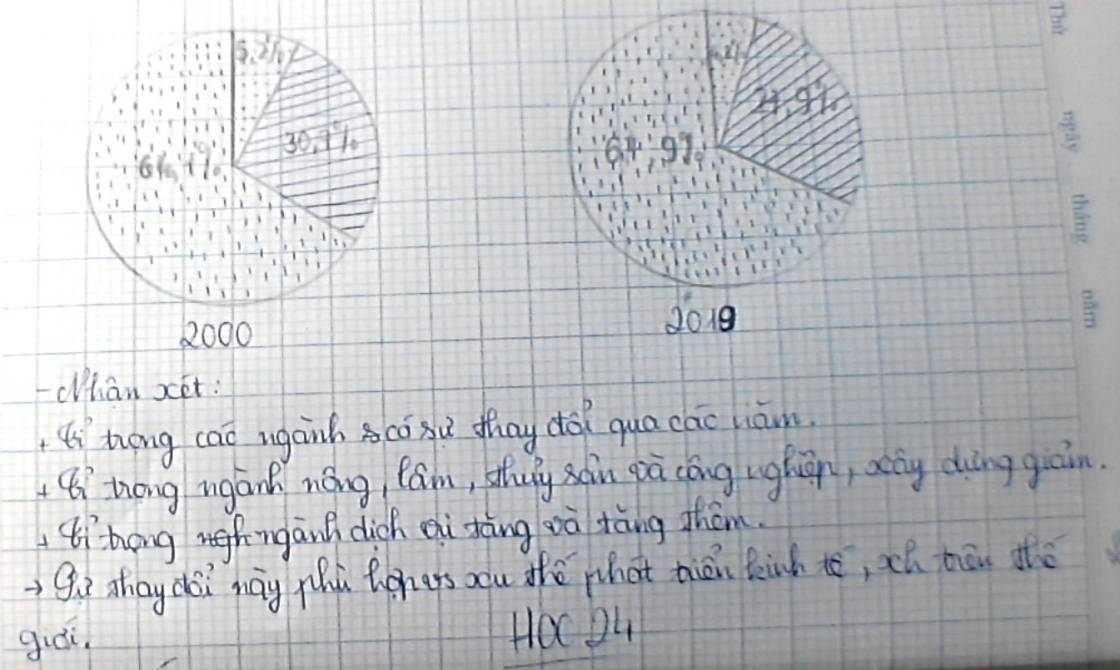 5,2%
30,7%
64,1%
4,2%
27,9%
67,9%
2000
2019
Thứ
ngày
tháng
năm
- Nhận xét:
+ Tỉ trọng các ngành có sự thay đổi qua các năm.
+ Tỉ trọng ngành nông, lâm, thuỷ sản và công nghiệp, xây dựng giảm.
+ Tỉ trọng ngành dịch vụ tăng và tăng thêm.
→ Sự thay đổi này phù hợp vs xu thế phát triển kinh tế, xh trên thế
giới.
HOC24